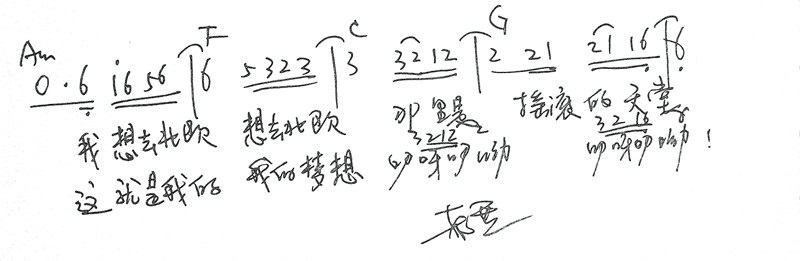 Am F C G
0 · 6 i656 | 6 5323 | 3 3212 | 2 21 21 16 | 6
我 想去北欧 想去北欧 那里是 摇滚的天堂
3212 2 3216 6
这就是我的 我的梦想 呦呀呦呦 呦呀呦呦!